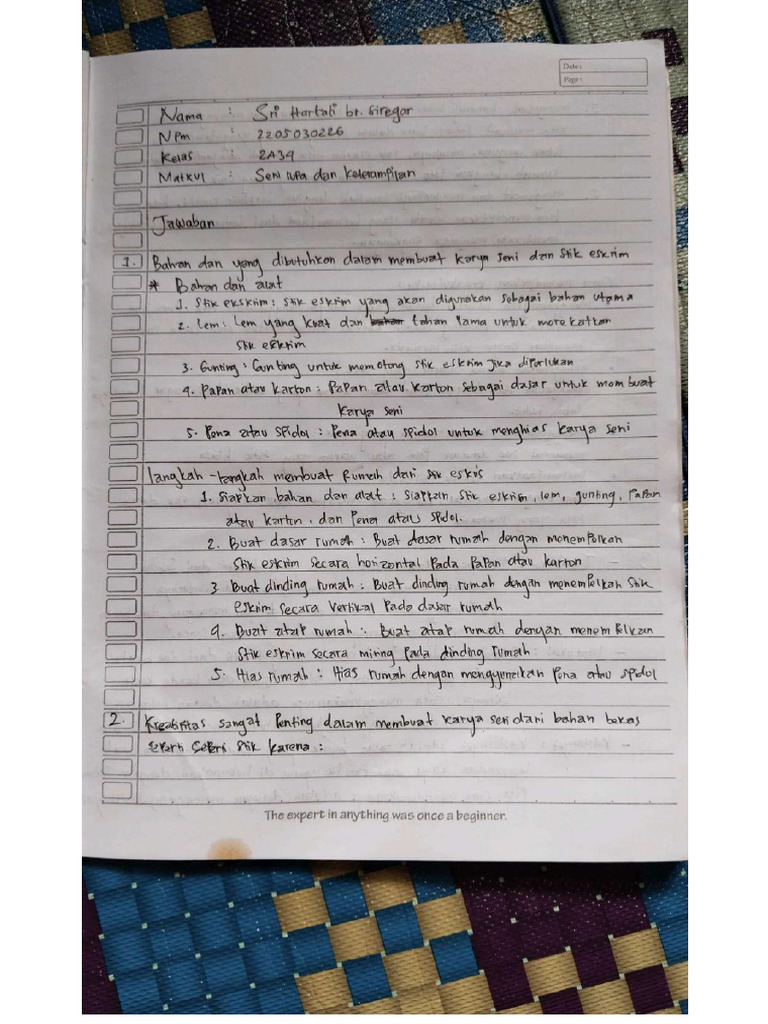 Date :
Page :
Nama : Sri Hartati br. Siregar
NPm : 2205030226
Kelas : 2A34
Matkul : Seni rupa dan keterampilan
Jawaban
1. Bahan dan yang dibutuhkan dalam membuat karya seni dan stik eskrim
* Bahan dan alat
1. Stik ekskrim : Stik eskrim yang akan digunakan sebagai bahan utama
2. Lem : Lem yang kuat dan bahan tahan lama untuk merekatkan
Stik eskrim
3. Gunting : Gunting untuk memotong stik eskrim jika diperlukan
4. Papan atau karton : Papan atau karton sebagai dasar untuk mombuat
karya seni
5. Pena atau spidol : Pena atau spidol untuk menghias karya seni
langkah - langkah membuat Rumah dari eskis
1. Siapkan bahan dan alat : Siapkan stik eskrim, lem, gunting, papan
atau karton. dan pena atau spidol.
2. Buat dasar rumah : Buat dasar rumah dengan menempelkan
Stik eskrim secara horizontal pada papan atau karton
3 Buat dinding rumah : Buat dinding rumah dengan menempelkah stik
eskrim secara vertikal pada dasar rumah
4. Buat atap rumah : Buat atap rumah dengan menempelkan
Stik eskrim secara miring pada dinding rumah
5. Hias rumah : Hias rumah dengan menggunakan pena atau spidol
2. Kreabifitas sangat penting dalam membuat karya seni dari bahan bekas
Stik karena :
The expert in anything was once a beginner.